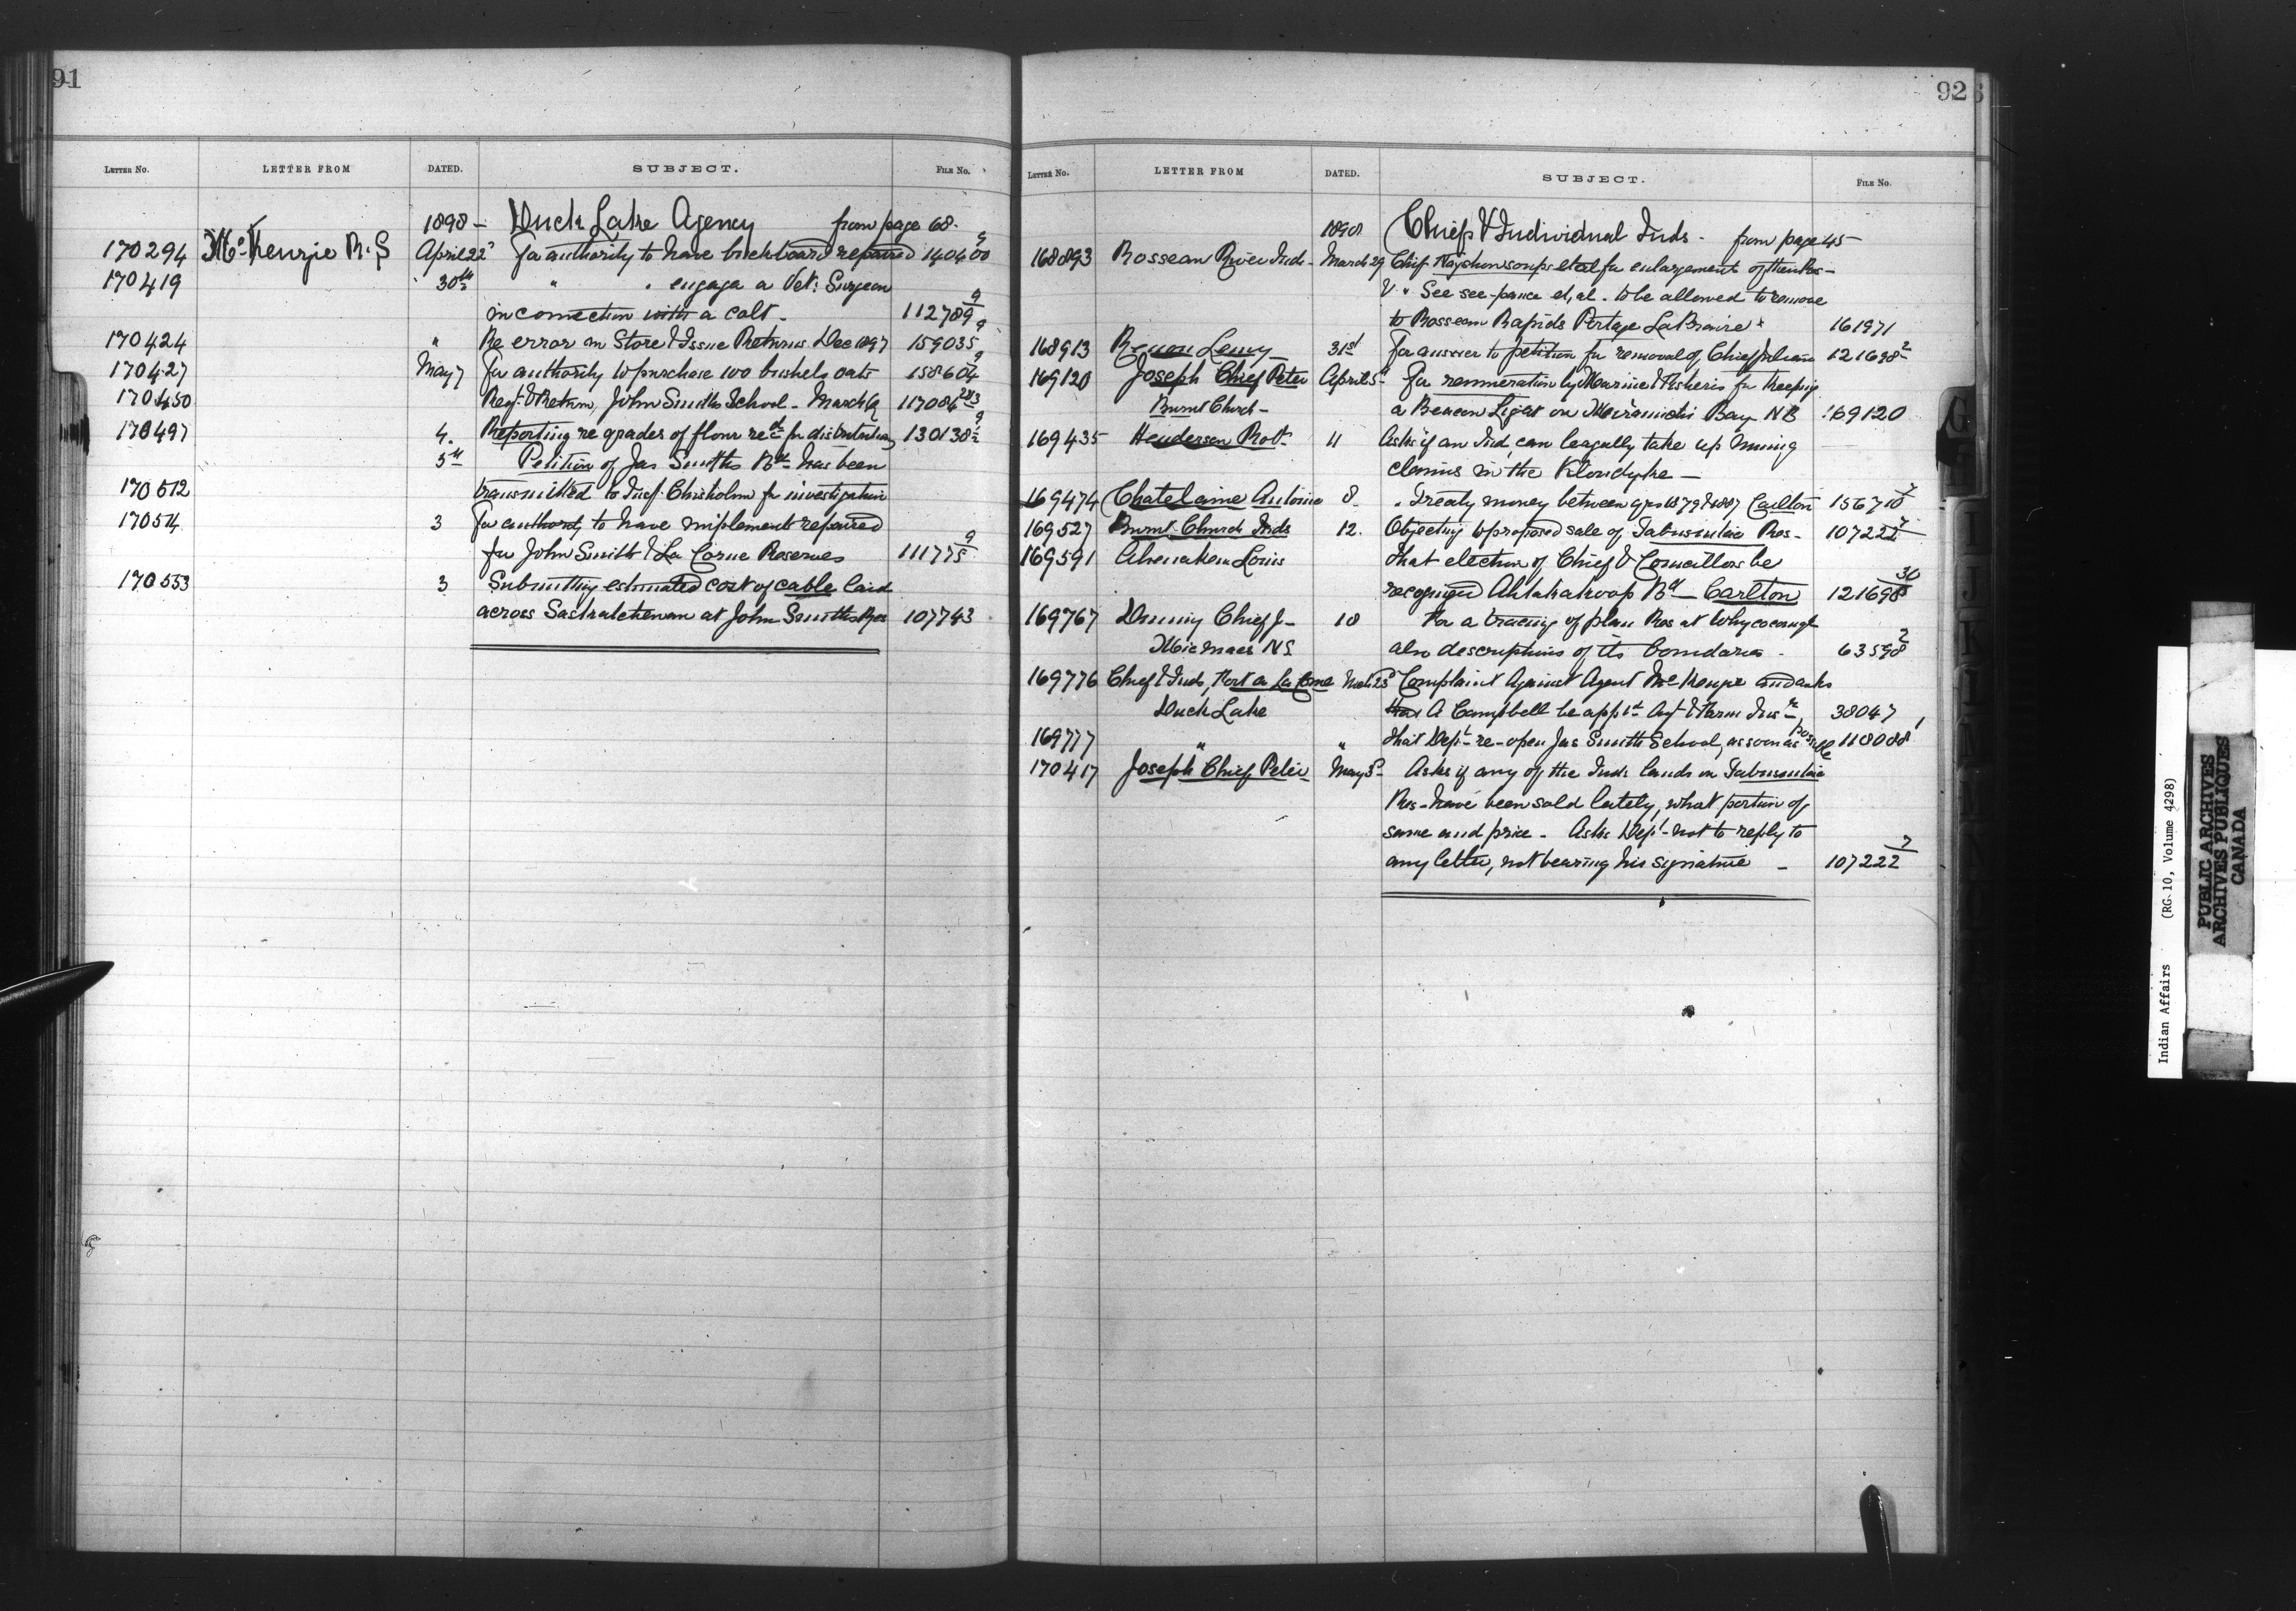 91
LETTER NO. LETTER FROM DATED. SUBJECT. FILE No.
1898 - Duck Lake Agency from page 68.
170294 McKenzie R. S April 22 For authority to have buckboard repaired 140400 9
170419 " 30th " " engage a Vet: Surgeon
in connection with a colt - 112789 9
170424 " Re error in Store & Issue Returns Dec 1897 159035 9
170427 May 7 For authority to purchase 100 bushels oats 158604 9
170450 Regr & Return, John Smiths School - March 117084
170497 4. Reporting re grades of flour recd for distribution 130138 9
5th Petition of Jas Smiths Bd has been
170512 transmitted to Insp. Chisholm for investigation
170514 3 For authority to have implements repaired
for John Smith & La Corne Reserves 111775 9
170553 3 Submitting estimated cost of cable laid
across Saskatchewan at John Smiths Res 107743
92
LETTER NO. LETTER FROM DATED. SUBJECT. FILE NO.
1898 Chiefs & Individual Inds - from page 45 -
168893 Rosseau River Inds - March 29 Chief et al for enlargement of their Res -
& " See see-pance et, al. to be allowed to remove
to Rosseau Rapids Portage La Prairie 161971
168913 31st For answer to petition for removal of Chief 121698 2
169120 Joseph Chief Peter April 5 For remuneration by Marine & Fisheries for keeping
Burnt Church - a Beacon Light on Miramichi Bay NB 169120
169435 Henderson Robt 11 Asks if an Ind, can leagally take up mining
claims in the Klondyke -
169474 Chatelaine Antoine 8. " Treaty money between yrs 1879 & 1887 Carlton 156710 7
169527 Burnt Church Inds 12. Objecting to proposed sale of Tabusintac Res - 107222 7
169591 Louis that election of Chief & Councillors be
recognized Ahtahakoop Bd - Carlton 121698 30
169767 Denny Chief J - 18 For a tracing of plan Res at Whycocomagh
Micmacs NS also descriptions of its boundaries - 63598 2
169776 Chief & Inds, Fort a La Corne Mch 25 Complaint Against Agent McKenzie and asks
Duck Lake A Campbell be appt Agt & Farm Instr, 38047
169777 " " that Dept re-open Jas Smith School, as soon as possible 118088 1
170417 Joseph Chief Peter May 3 Asks if any of the Inds lands on Tabusintac
Res - have been sold lately, what portion of
same and price - Asks Dept - not to reply to
any letter, not bearing his signature - 107222 7
Indian Affairs (RG 10, Volume 4298)
PUBLIC ARCHIVES
ARCHIVES PUBLIQUES
CANADA